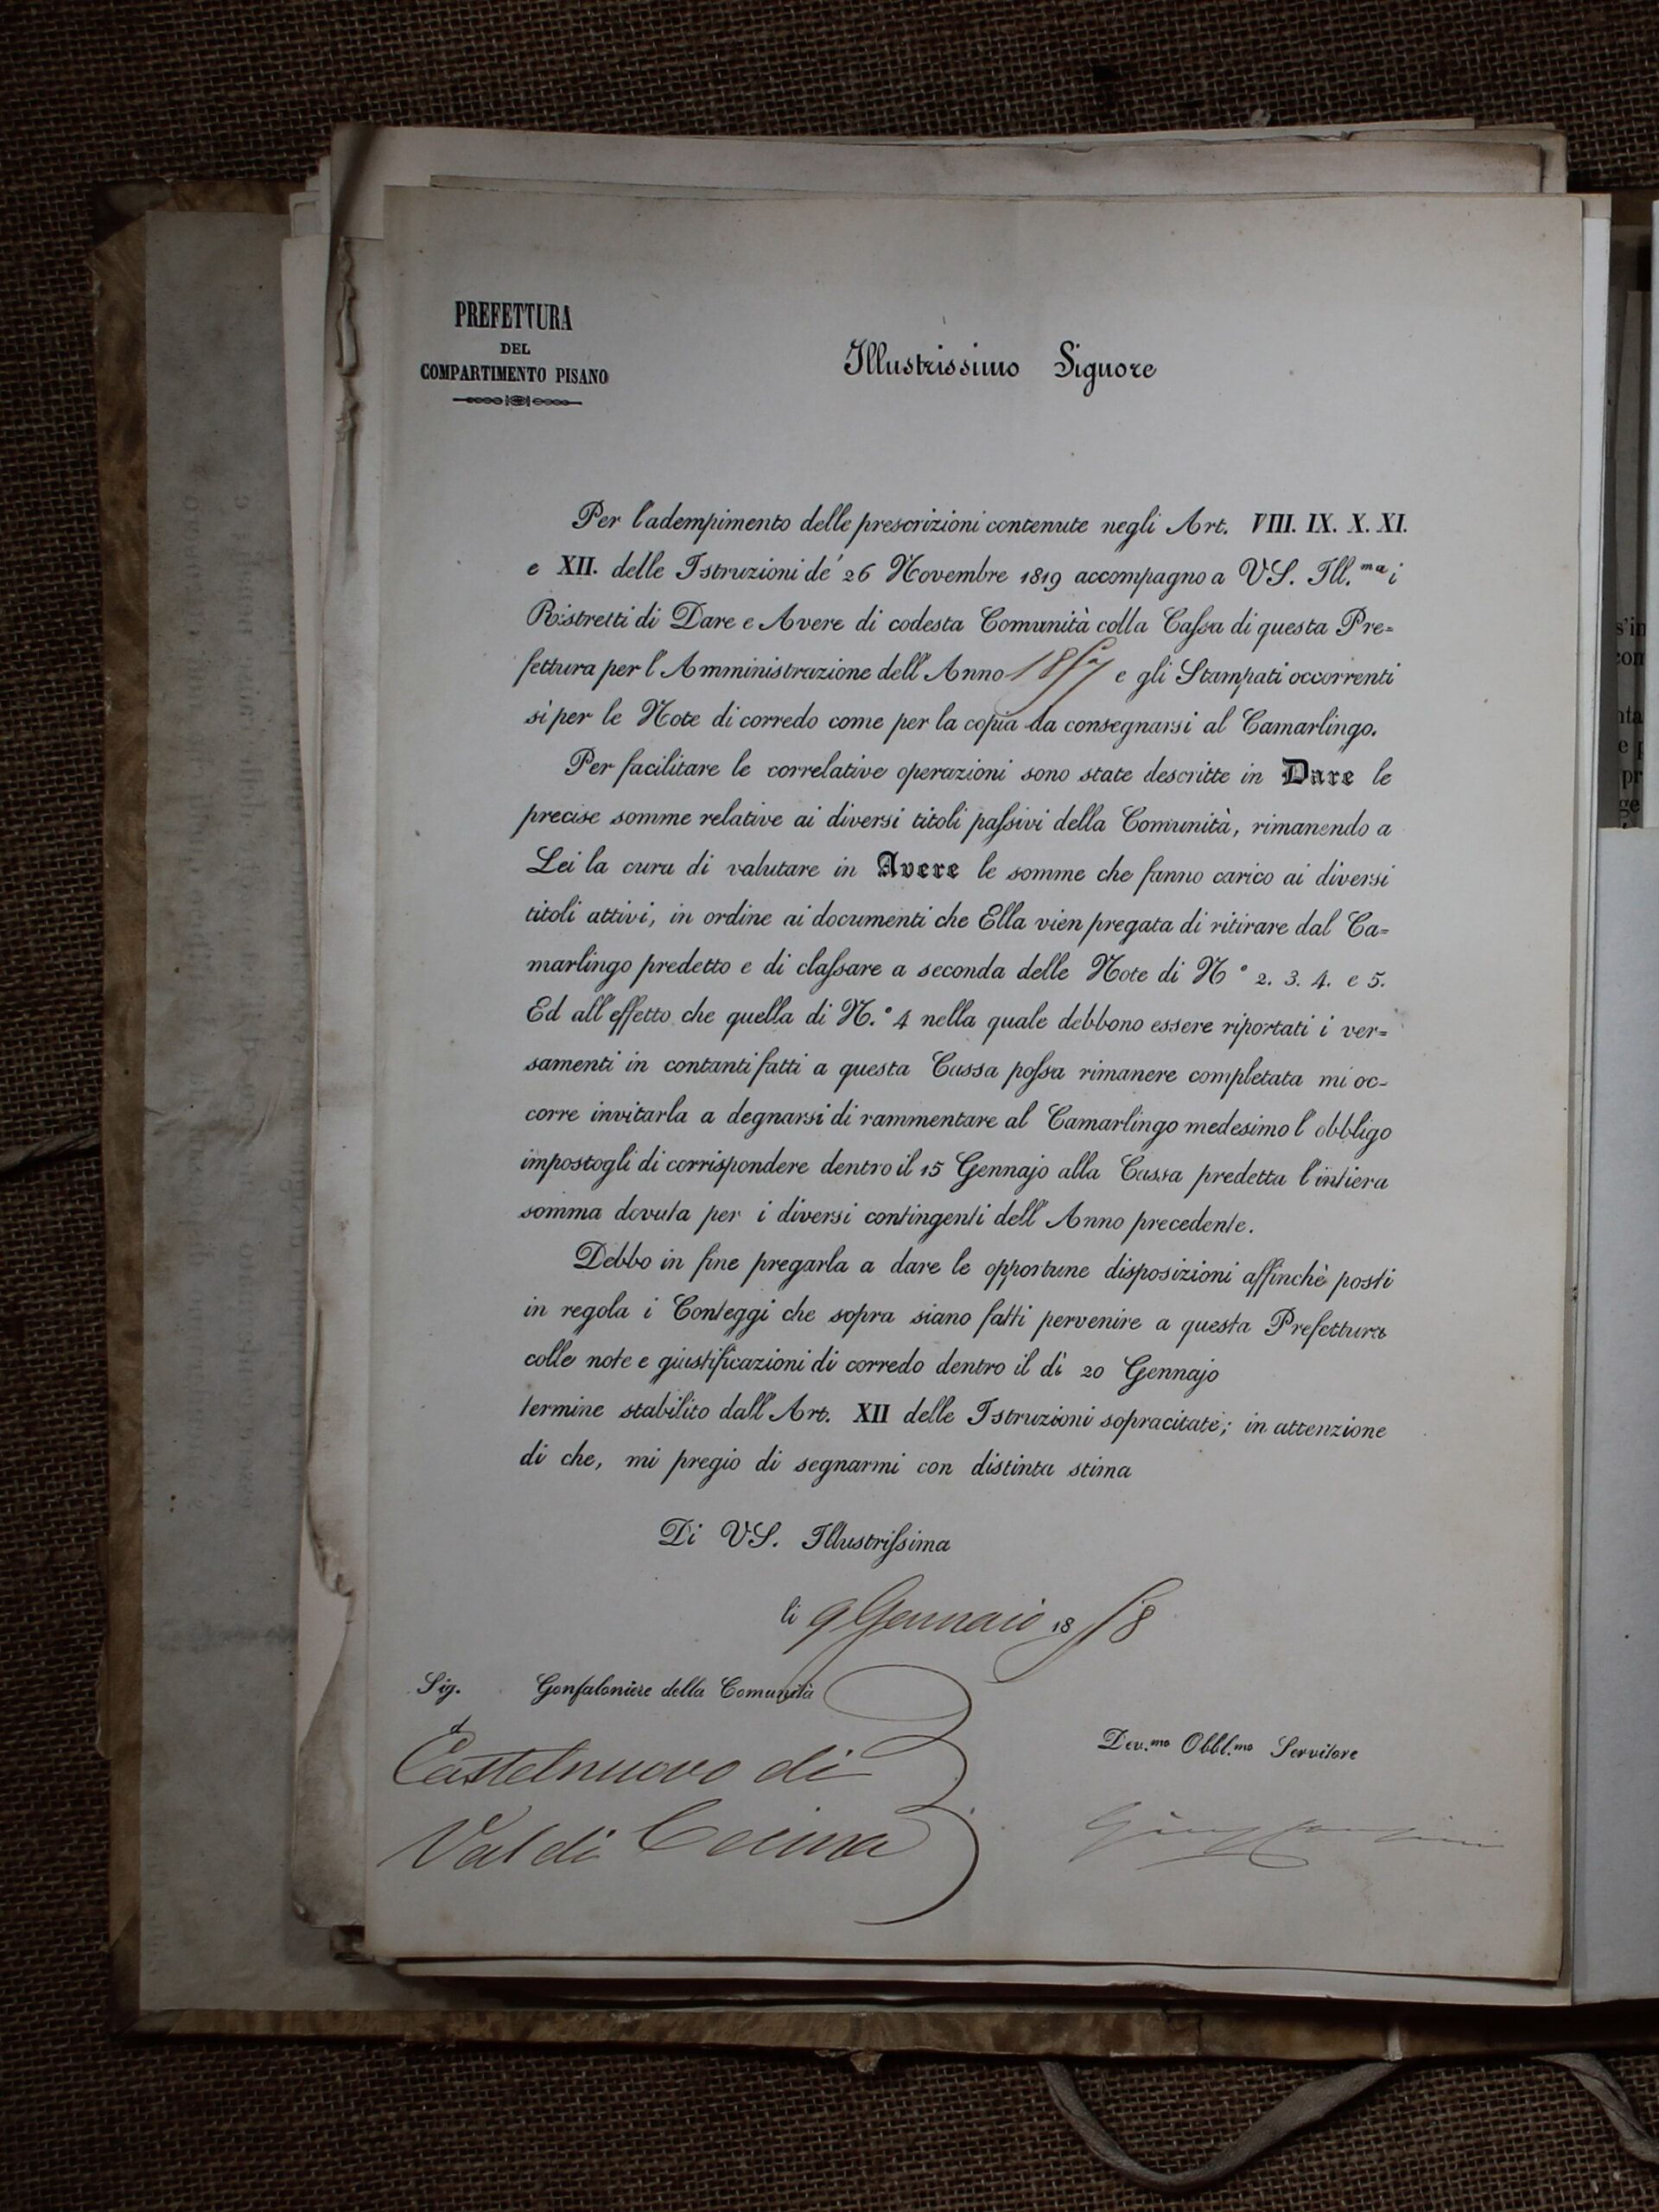 PREFETTURA
DEL
COMPARTIMENTO PISANO
Illustrissimo Signore
Per l'adempimento delle prescrizioni contenute negli Art. VIII. IX. X. XI.
e XII. delle Istruzioni de' 26 Novembre 1819 accompagno a VS. Ill.ma i
Ristretti di Dare e Avere di codesta Comunità colla Caſsa di questa Pre=
fettura per l'Amministrazione dell'Anno 1857 e gli Stampati occorrenti
sì per le Note di corredo come per la copia da consegnarsi al Camarlingo.
Per facilitare le correlative operazioni sono state descritte in Dare le
precise somme relative ai diversi titoli paſsivi della Comunità, rimanendo a
Lei la cura di valutare in Avere le somme che fanno carico ai diversi
titoli attivi, in ordine ai documenti che Ella vien pregata di ritirare dal Ca=
marlingo predetto e di claſsare a seconda delle Note di N° 2. 3. 4. e 5.
Ed all'effetto che quella di N.° 4 nella quale debbono essere riportati i ver=
samenti in contanti fatti a questa Cassa poſsa rimanere completata mi oc-
corre invitarla a degnarsi di rammentare al Camarlingo medesimo l'obbligo
impostogli di corrispondere dentro il 15 Gennajo alla Cassa predetta l'intiera
somma dovuta per i diversi contingenti dell'Anno precedente.
Debbo in fine pregarla a dare le opportune disposizioni affinchè posti
in regola i Conteggi che sopra siano fatti pervenire a questa Prefettura
colle note e giustificazioni di corredo dentro il dì 20 Gennajo
termine stabilito dall'Art. XII delle Istruzioni sopracitate; in attenzione
di che, mi pregio di segnarmi con distinta stima
Di VS. Illustriſsima
li 9 Gennaio 1858
Sig. Gonfaloniere della Comunità
di
Castelnuovo di
Val di Cecina
Dev.mo Obbl.mo Servitore